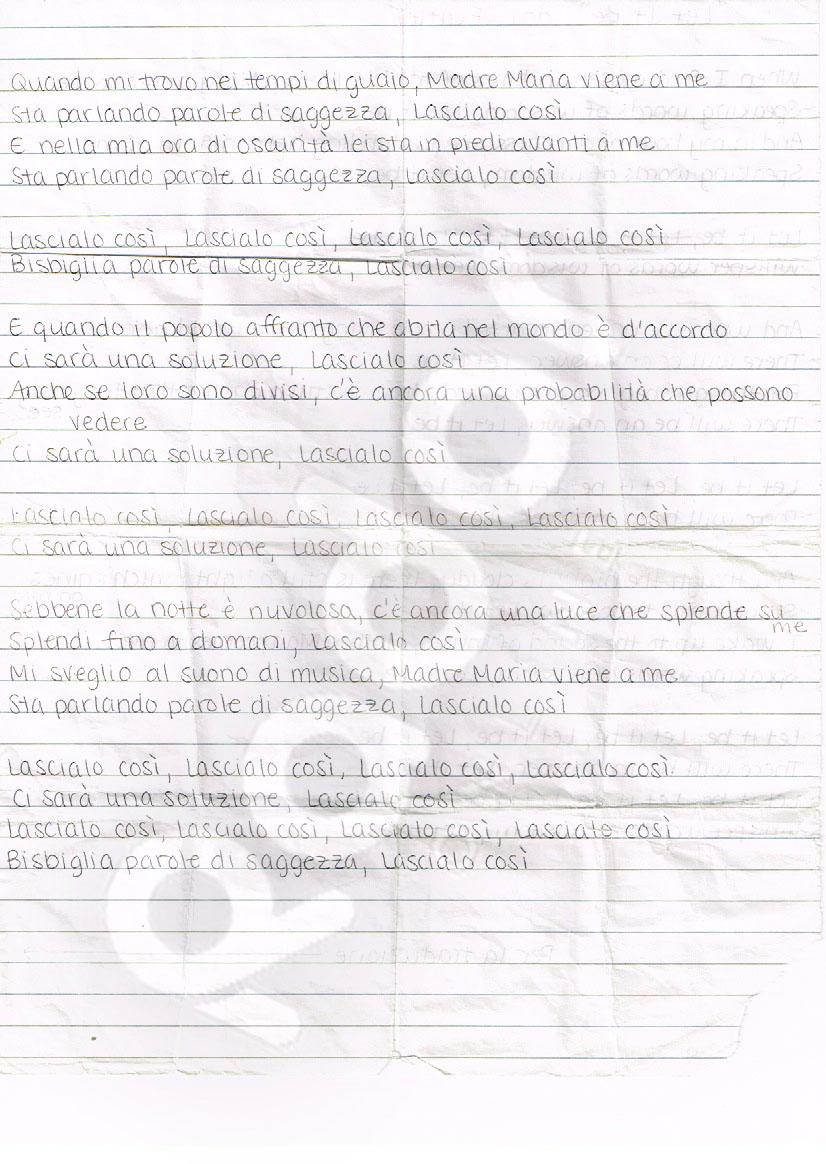 Quando mi trovo nei tempi di guaio, Madre Maria viene a me
Sta parlando parole di saggezza, Lascialo così
E nella mia ora di oscurità lei sta in piedi avanti a me
Sta parlando parole di saggezza, Lascialo così
Lascialo così, Lascialo così, Lascialo così, Lascialo così
Bisbiglia parole di saggezza, Lascialo così
E quando il popolo affranto che abita nel mondo è d'accordo
Ci sarà una soluzione, Lascialo così
Anche se loro sono divisi, c'è ancora una probabilità che possono
vedere
Ci sarà una soluzione, Lascialo così
Lascialo così, Lascialo così, Lascialo così, Lascialo così
Ci sarà una soluzione, Lascialo così
Sebbene la notte è nuvolosa, c'è ancora una luce che splende su
me
Splendi fino a domani, Lascialo così
Mi sveglio al suono di musica, Madre Maria viene a me
Sta parlando parole di saggezza, Lascialo così
Lascialo così, Lascialo così, Lascialo così, Lascialo così
Ci sarà una soluzione, Lascialo così
Lascialo così, Lascialo così, Lascialo così, Lascialo così
Bisbiglia parole di saggezza, Lascialo così